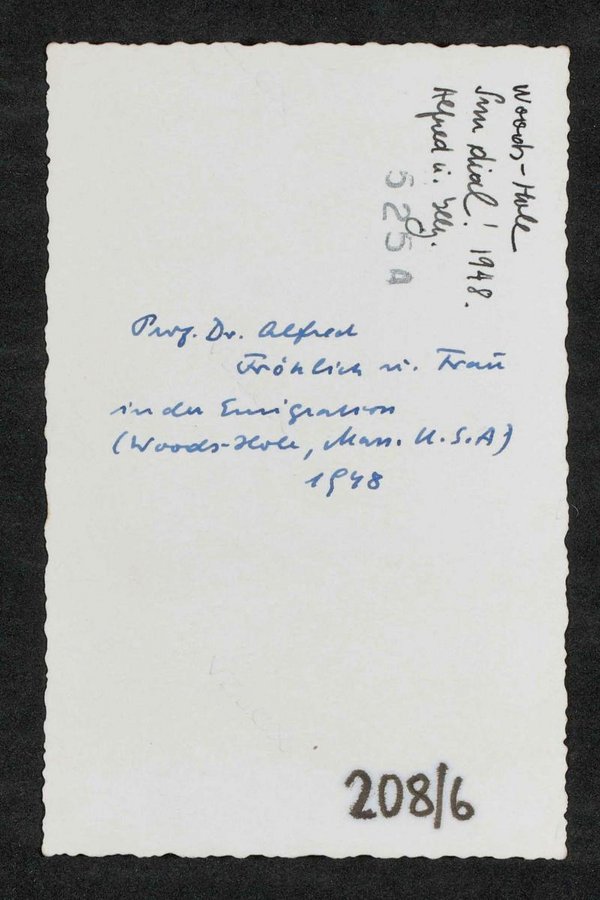 Woods-Hole
Sun dial! 1948.
Alfred u.
525A
Prof. Dr. Alfred
Fröhlich u. Frau
in der Emigration
(Woods-Hole, Mass. U.S.A)
1948
208/6